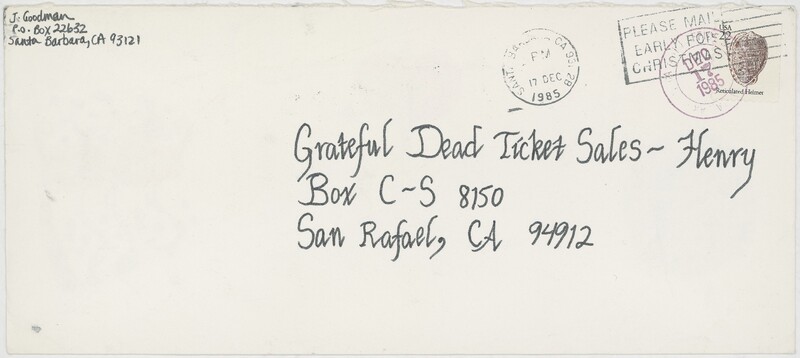 J. Goodman
P.O. Box 22632
Santa Barbara, CA 93121
PM
17 DEC
1985
PLEASE MAIL
EARLY FOR
CHRISTMAS
USA
22
DEC
17
1985
Reticulated Helmet
Grateful Dead Ticket Sales~ Henry
Box C~S 8150
San Rafael, CA 94912